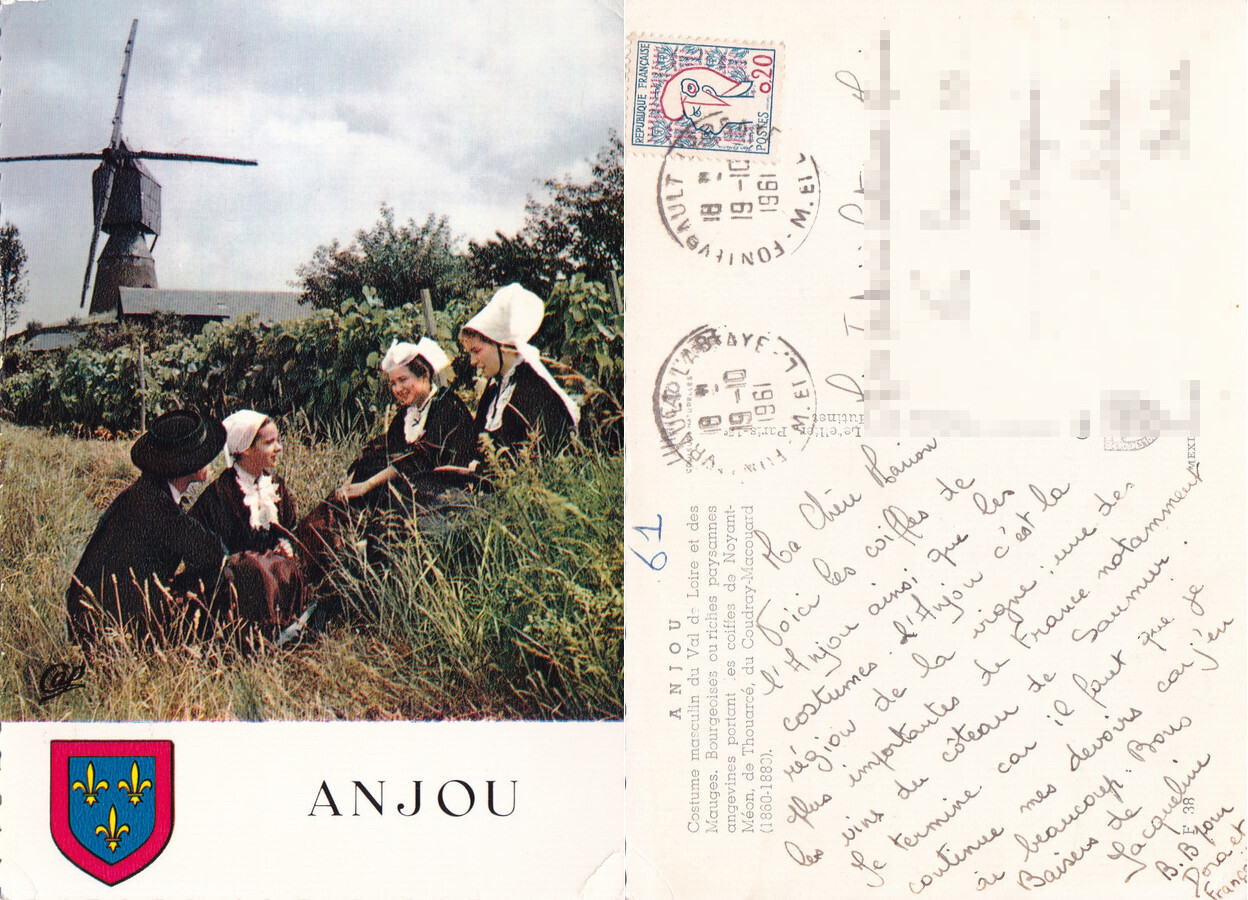 ANJOU
REPUBLIQUE FRANÇAISE
0,20
POSTES
18 H
19-10
1961
FONTEVRAULT
M. ET L.
18 H
19-10
1961
L'ABBAYE
M. ET L.
61
ANJOU
Costume masculin du Val de Loire et des
Mauges. Bourgeoises ou riches paysannes
angevines portant les coiffes de Noyant-
Méon, de Thouarcé, du Coudray-Macouard
(1860-1880).
Ma Chère Marion
Voici les coiffes de
l'Anjou ainsi que les
costumes. l'Anjou c'est la
région de la vigne ; une des
plus importantes de France notamment
les vins du côteau de Saumur.
Je termine car il faut que je
continue mes devoirs car j'en
ai beaucoup. Bons
Baisers de Jacqueline
B.B pour
Dora et
E 38
MEXI